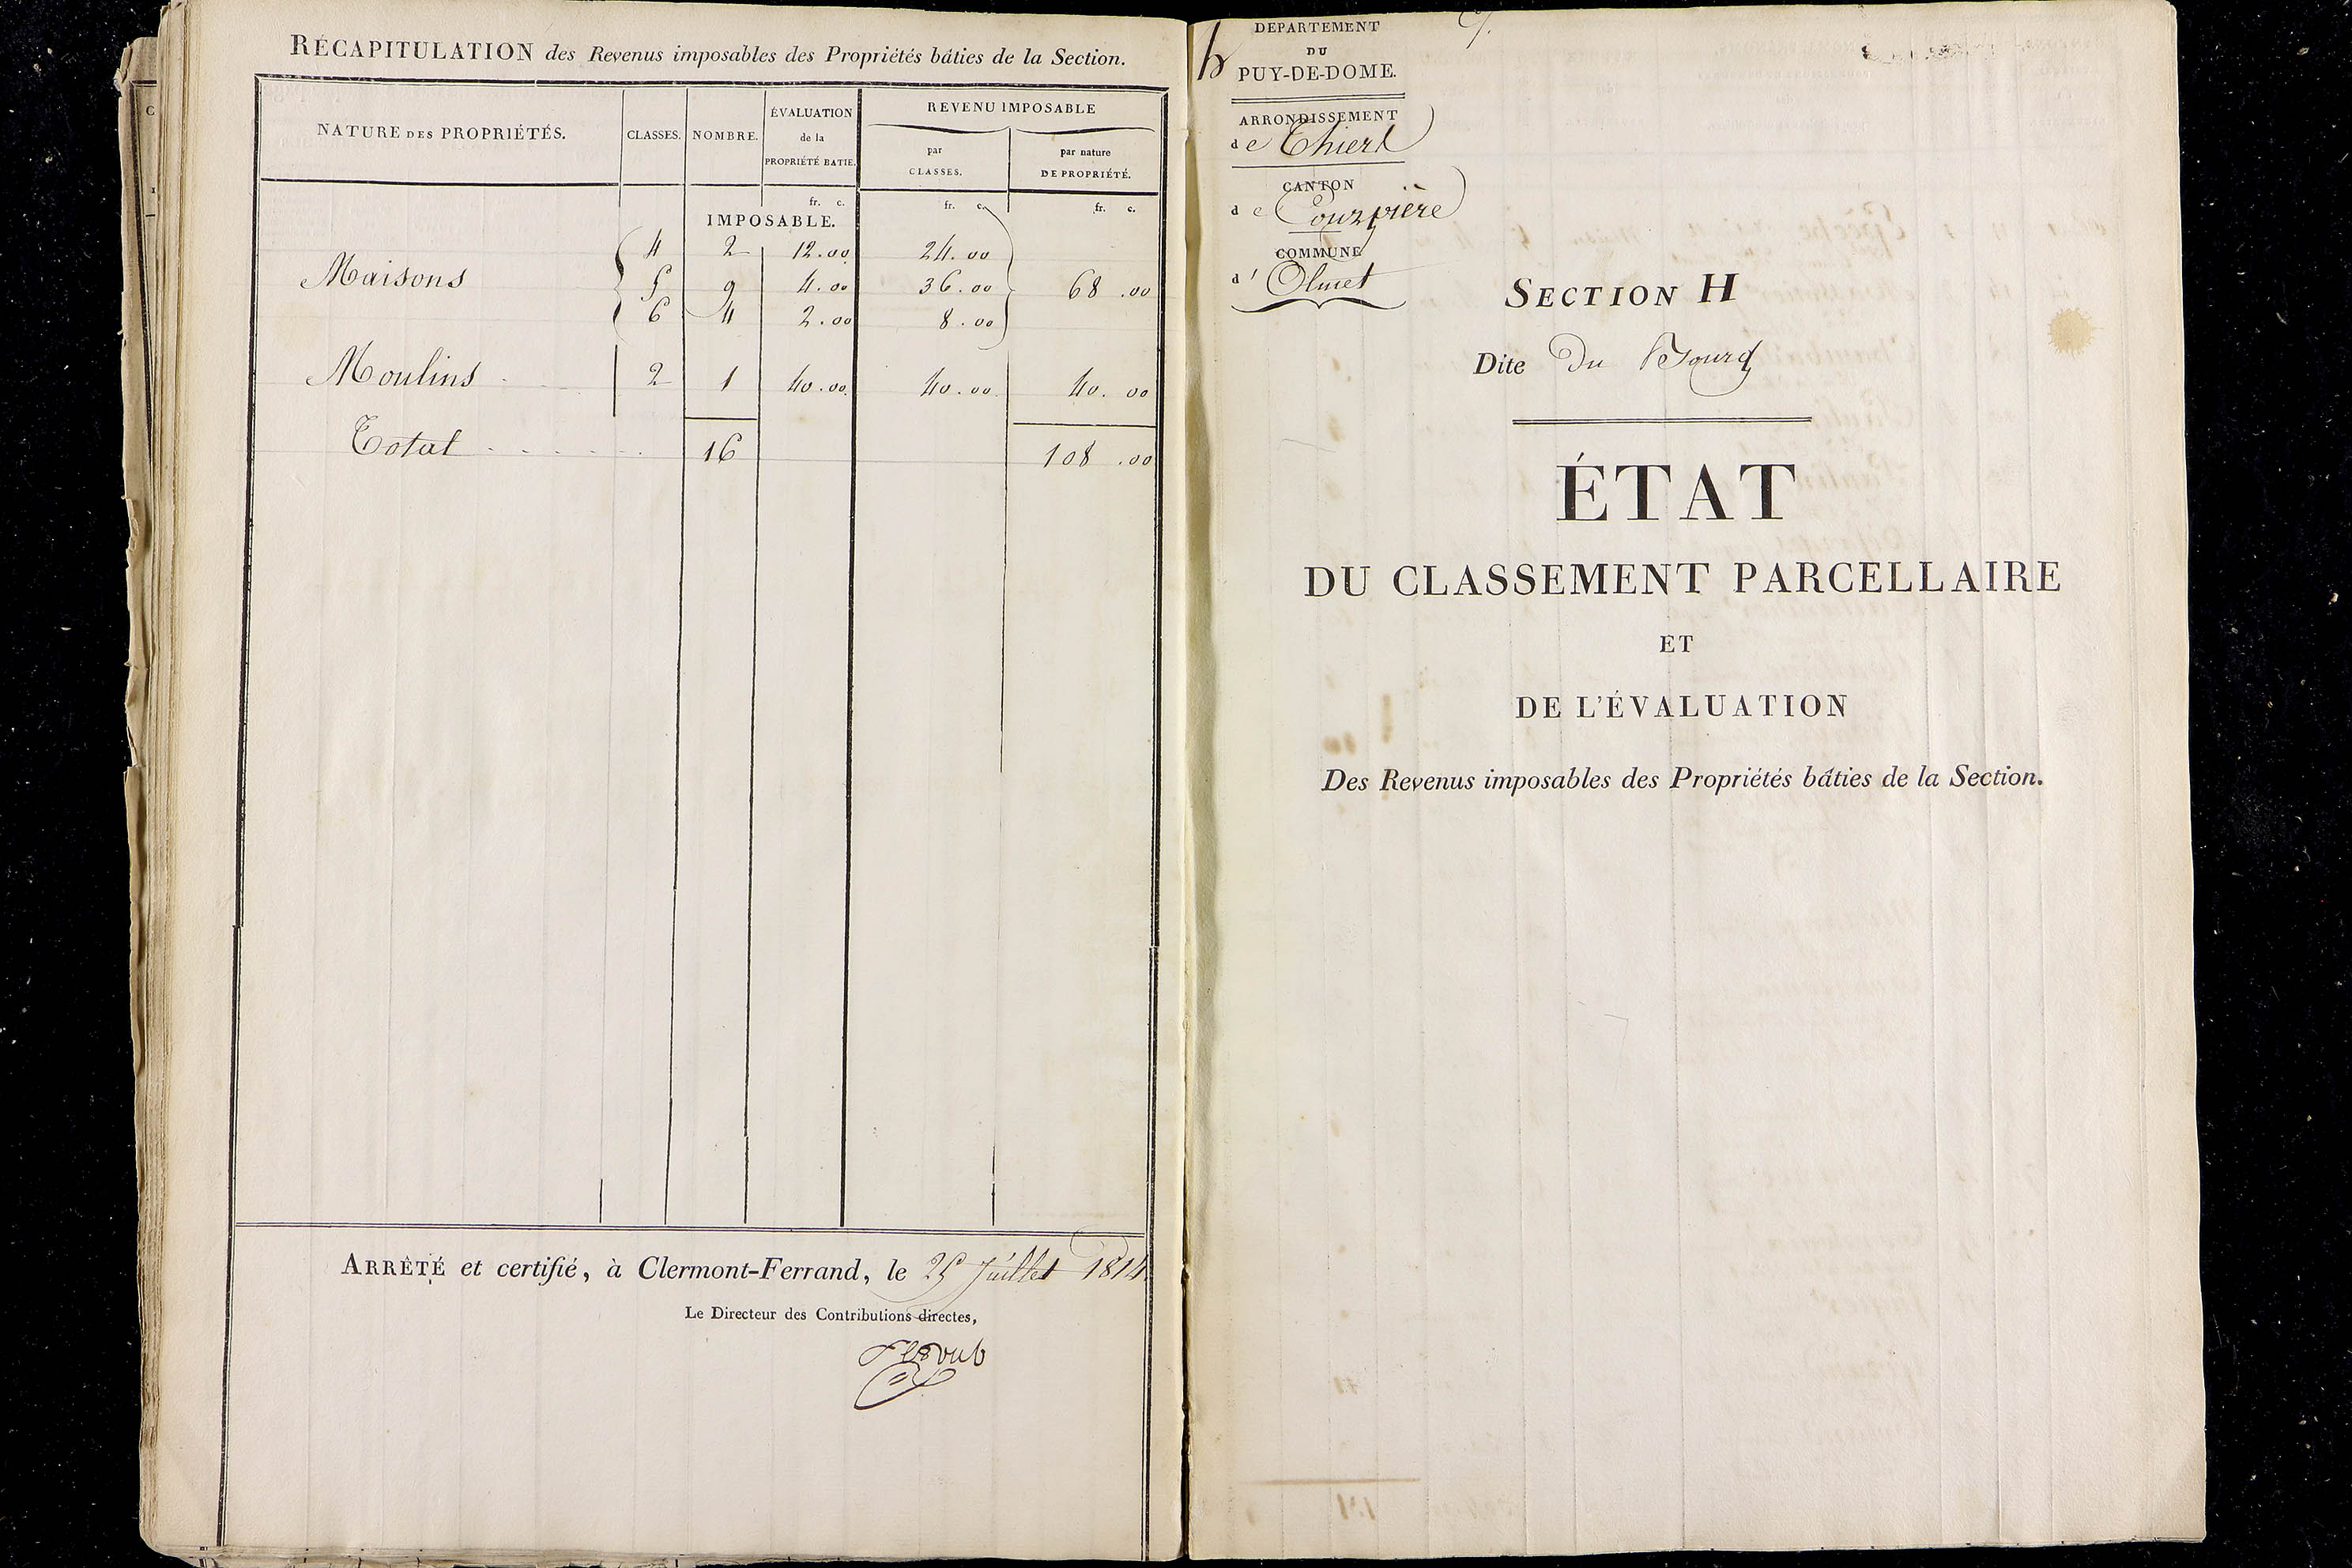 RÉCAPITULATION des Revenus imposables des Propriétés bâties de la Section.
NATURE DES PROPRIÉTÉS. CLASSES. NOMBRE. ÉVALUATION de la PROPRIÉTÉ BATIE. REVENU IMPOSABLE
par CLASSES. par nature DE PROPRIÉTÉ.
fr. c. fr. c. fr. c.
IMPOSABLE.
4 2 12.00 24.00
Maisons 5 9 4.00 36.00 68.00
6 4 2.00 8.00
Moulins 2 1 40.00 40.00 40.00
Total 16 108.00
ARRÊTÉ et certifié, à Clermont-Ferrand, le 25 Juillet 1814
Le Directeur des Contributions directes,
h
DEPARTEMENT
DU
PUY-DE-DOME.
ARRONDISSEMENT
de Thiers
CANTON
de Courpière
COMMUNE
d'Olmet
SECTION H
Dite Du Bourg
ÉTAT
DU CLASSEMENT PARCELLAIRE
ET
DE L'ÉVALUATION
Des Revenus imposables des Propriétés bâties de la Section.